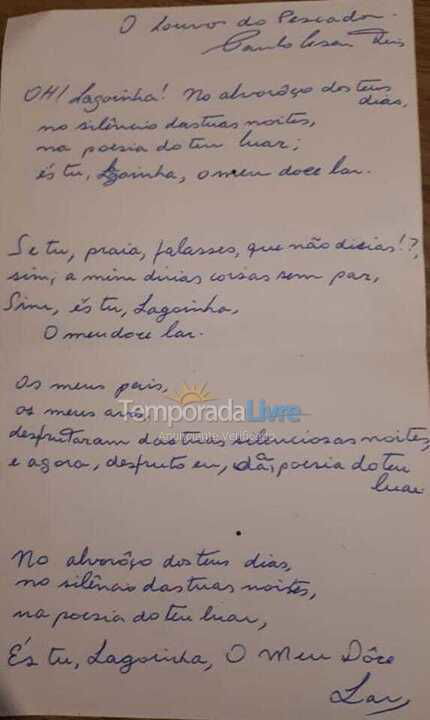 O Louvor do Pescador.
Paulo Cesar Reis
OH! Lagoinha! No alvorôço dos teus
dias,
no silêncio das tuas noites,
na poesia do teu luar;
és tu, Lagoinha, o meu doce lar.
Se tu, praia, falasses, que não dirias!?,
sim, a mim dirias coisas sem par,
Sim, és tu, Lagoinha,
O meu doce lar.
Os meus pais,
os meus avós,
TemporadaLivre
Anunciante Verificado
desfrutaram das tuas silenciosas noites,
e agora, desfruto eu, da poesia do teu
luar
No alvorôço dos teus dias,
no silêncio das tuas noites,
na poesia do teu luar,
És tu, Lagoinha, O Meu Dôce
Lar,